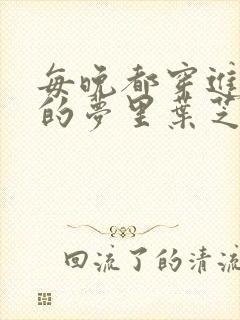 每晚都穿進
的夢里葉芝
回流了的清流